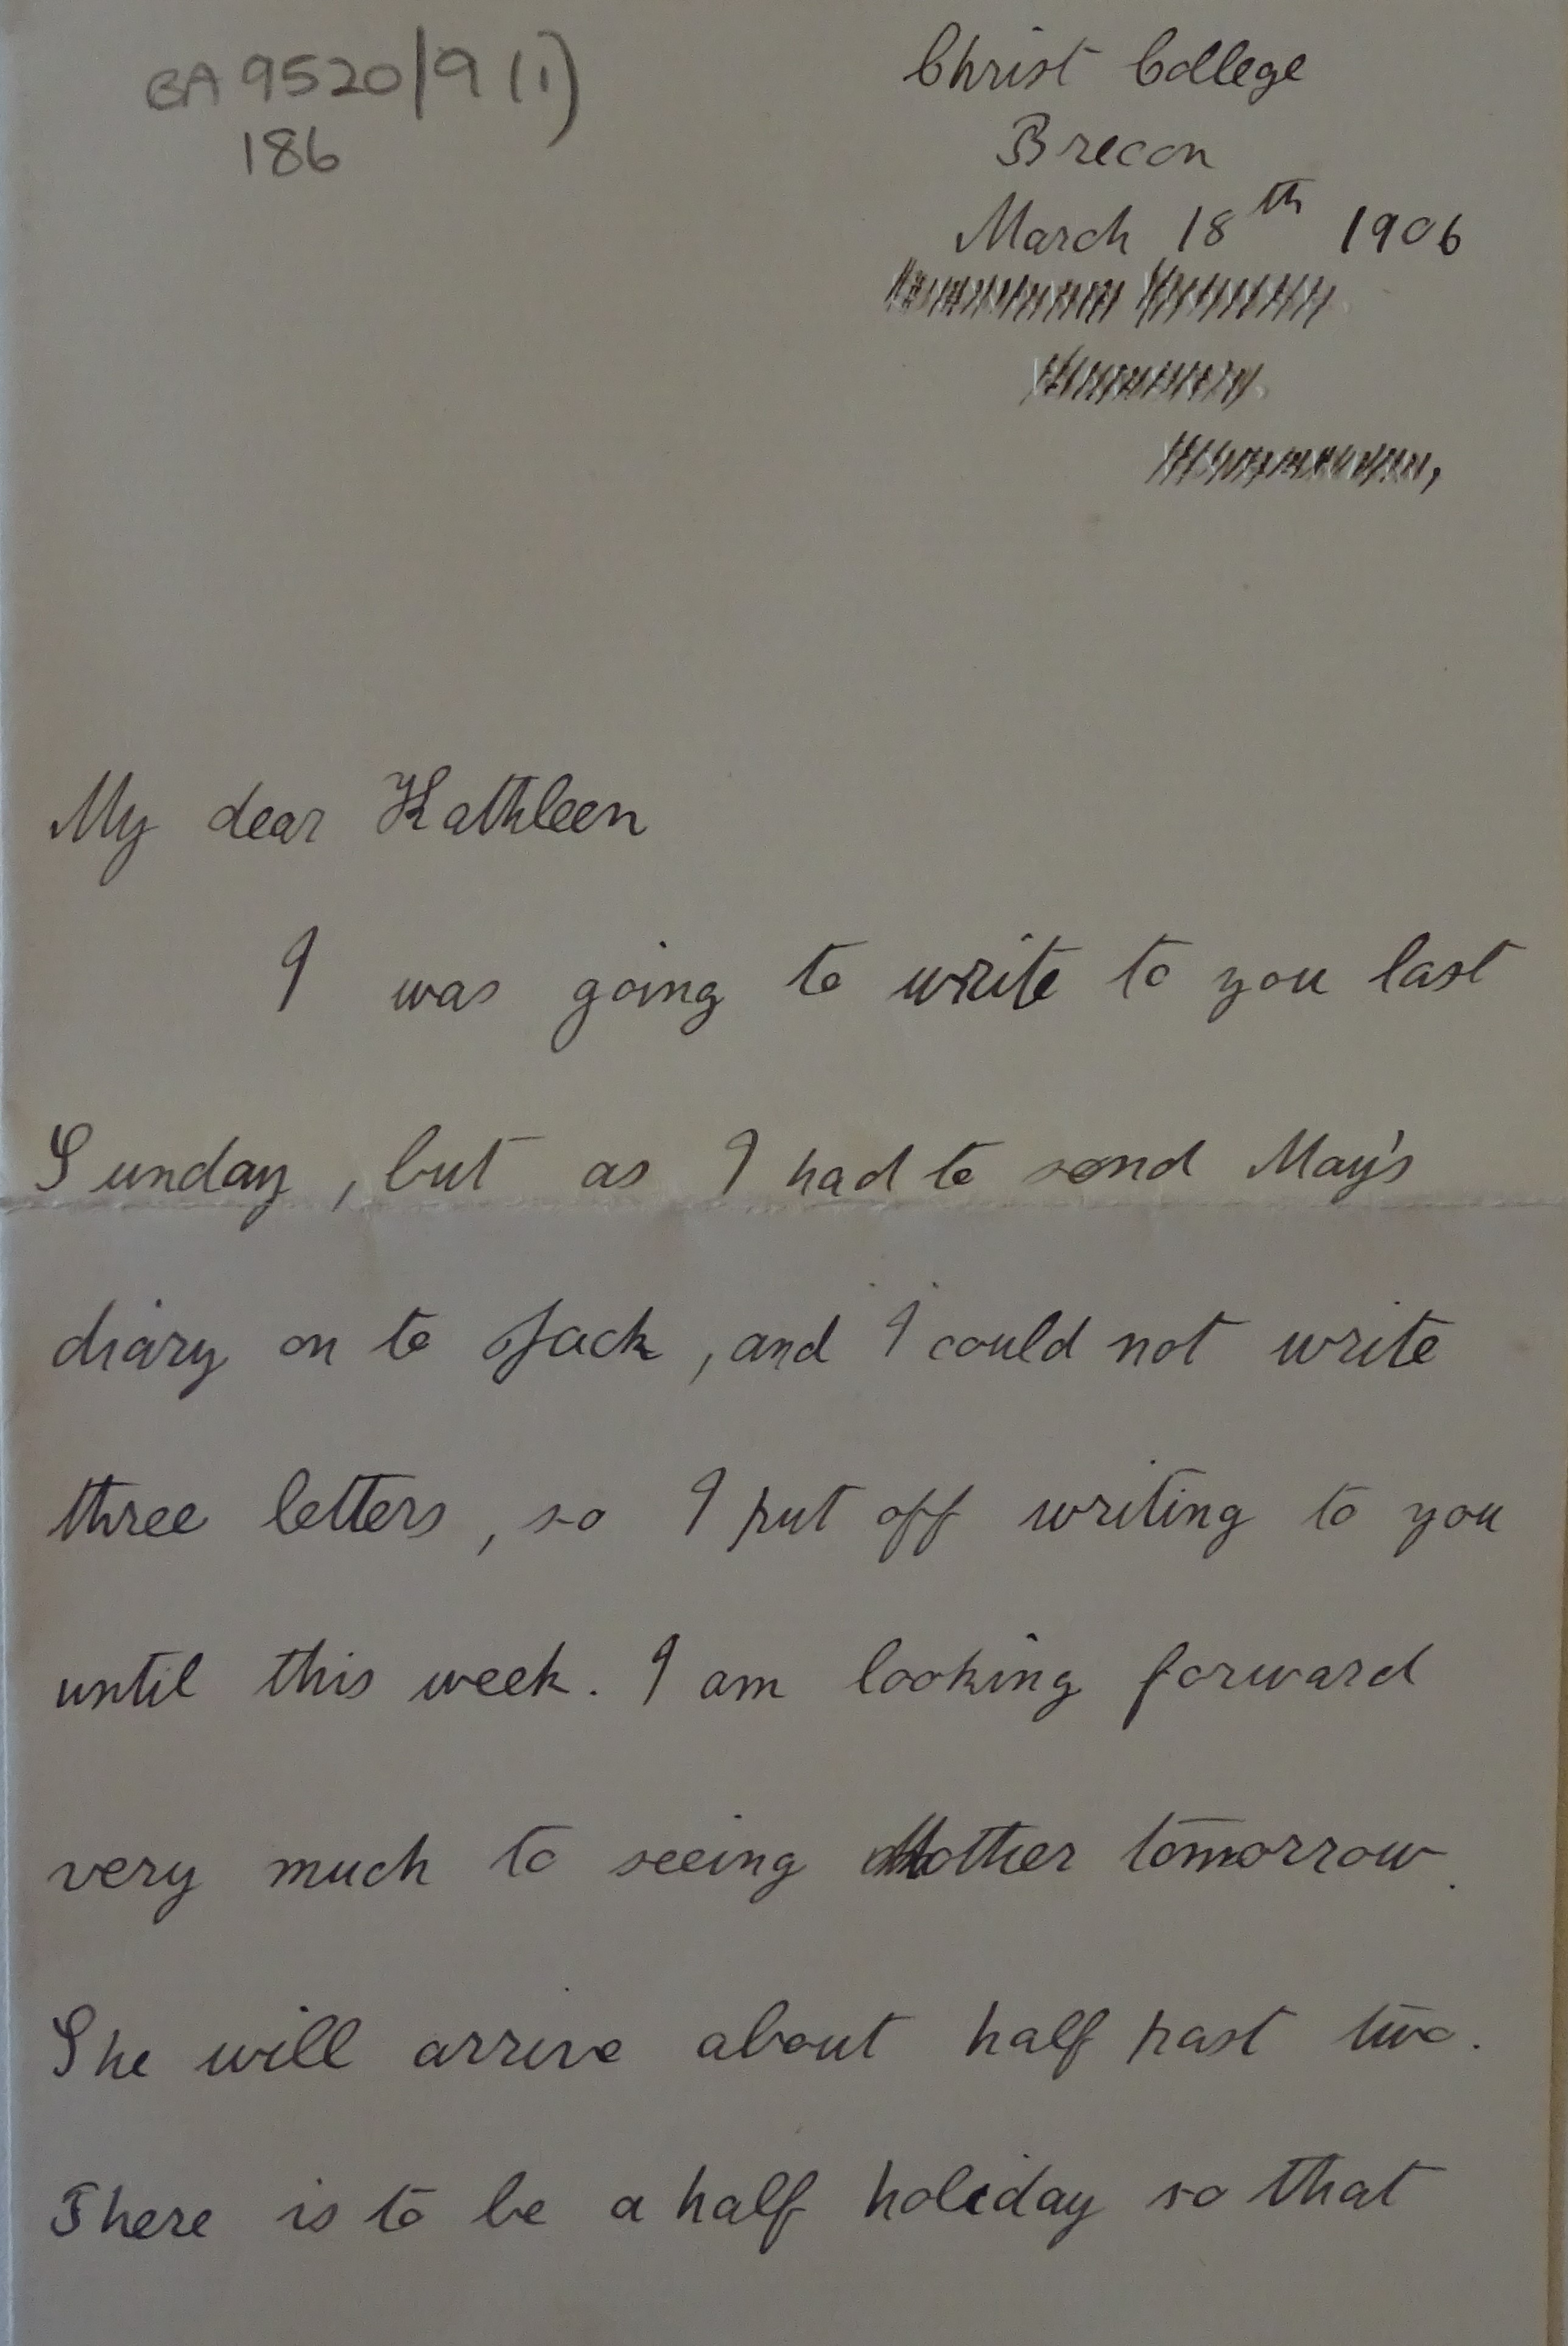 BA 9520/9 (1)
186
Christ College
Brecon
March 18th 1906
My dear Kathleen
I was going to write to you last
Sunday, but as I had to send May's
diary on to Jack, and I could not write
three letters, so I put off writing to you
until this week. I am looking forward
very much to seeing Mother tomorrow.
She will arrive about half past two.
There is to be a half holiday so that